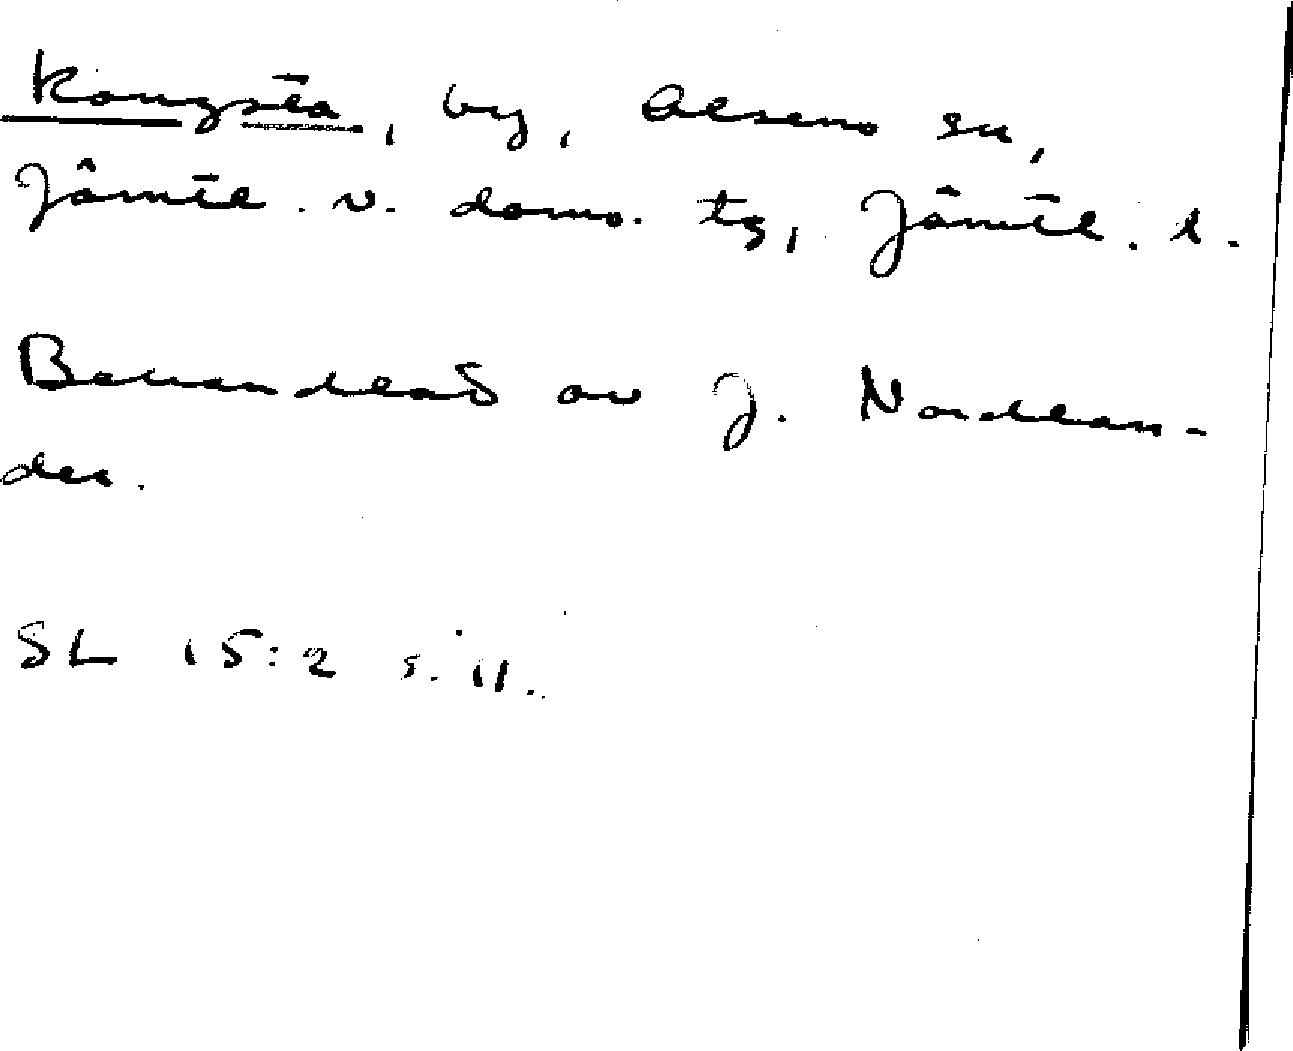 Kougsta, by, Alsens sn,
Jämtl. v. doms. tg, Jämtl. l.
Behandlat av J. Nordlan-
der.
SL 15:2 s. 11.